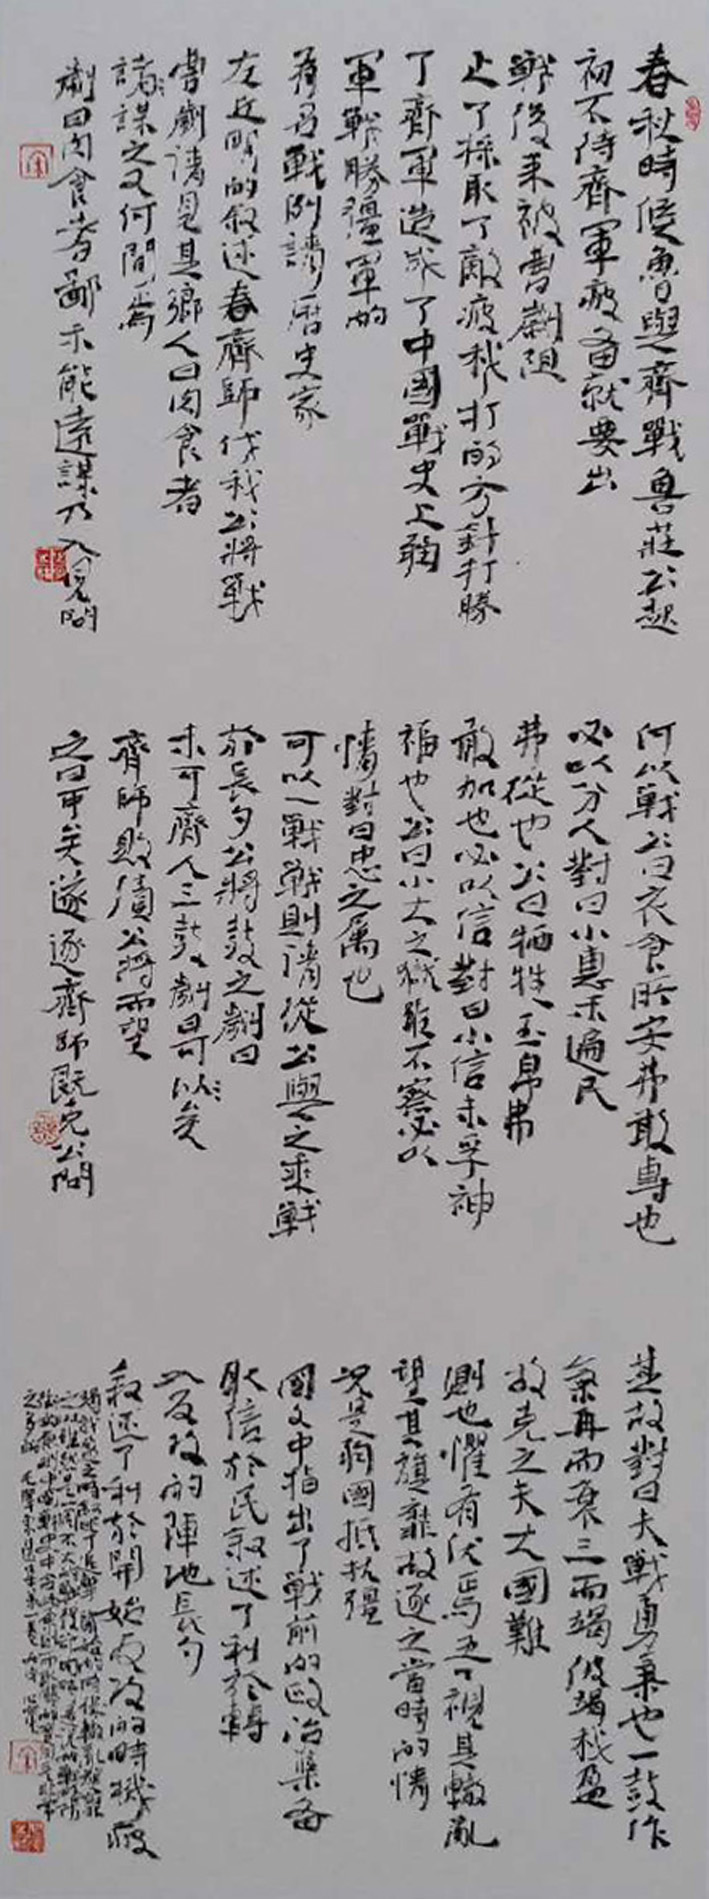 春秋時候魯與齊戰魯莊公起
初不待齊軍疲备就要出
戰後来被曹劌阻
止了採取了敵疲我打的方針打勝
了齊軍造成了中國戰史上弱
軍戰勝彊軍的
有名戰例請歷史家
左丘明的叙述春齊師伐我公將戰
曹劌請見其鄉人曰肉食者
請謀之又何間焉
劌曰肉食者鄙未能遠謀乃入見問
何以戰公曰衣食所安弗敢專也
必以分人對曰小惠未遍民
弗從也公曰犧牲玉帛弗
敢加也必以信對曰小信未孚神
福也公曰小大之獄雖不察必以
情對曰忠之属也
可以一戰戰則請從公與之乘戰
於長勺公將鼓之劌曰
未可齊人三鼓劌曰可以矣
齊師敗績公將而望
之曰可矣遂逐齊師既克公問
其故對曰夫戰勇氣也一鼓作
氣再而衰三而竭彼竭我盈
故克之夫大國難
測也懼有伏焉吾視其轍亂
望其旗靡故逐之當時的情
况是弱國抵抗彊
國文中指出了戰前的政治準备
取信於民叙述了利於轉
入反攻的陣地長勺
叙述了利於開始反攻的時機彼
竭我盈之時叙述了追擊開始的時機轍亂旗靡
之時雖然是一個不大的戰役却同時是說的戰略防
御的原則中國戰史中合此原則而取勝的實例是非常
之多的毛澤東選集第一卷